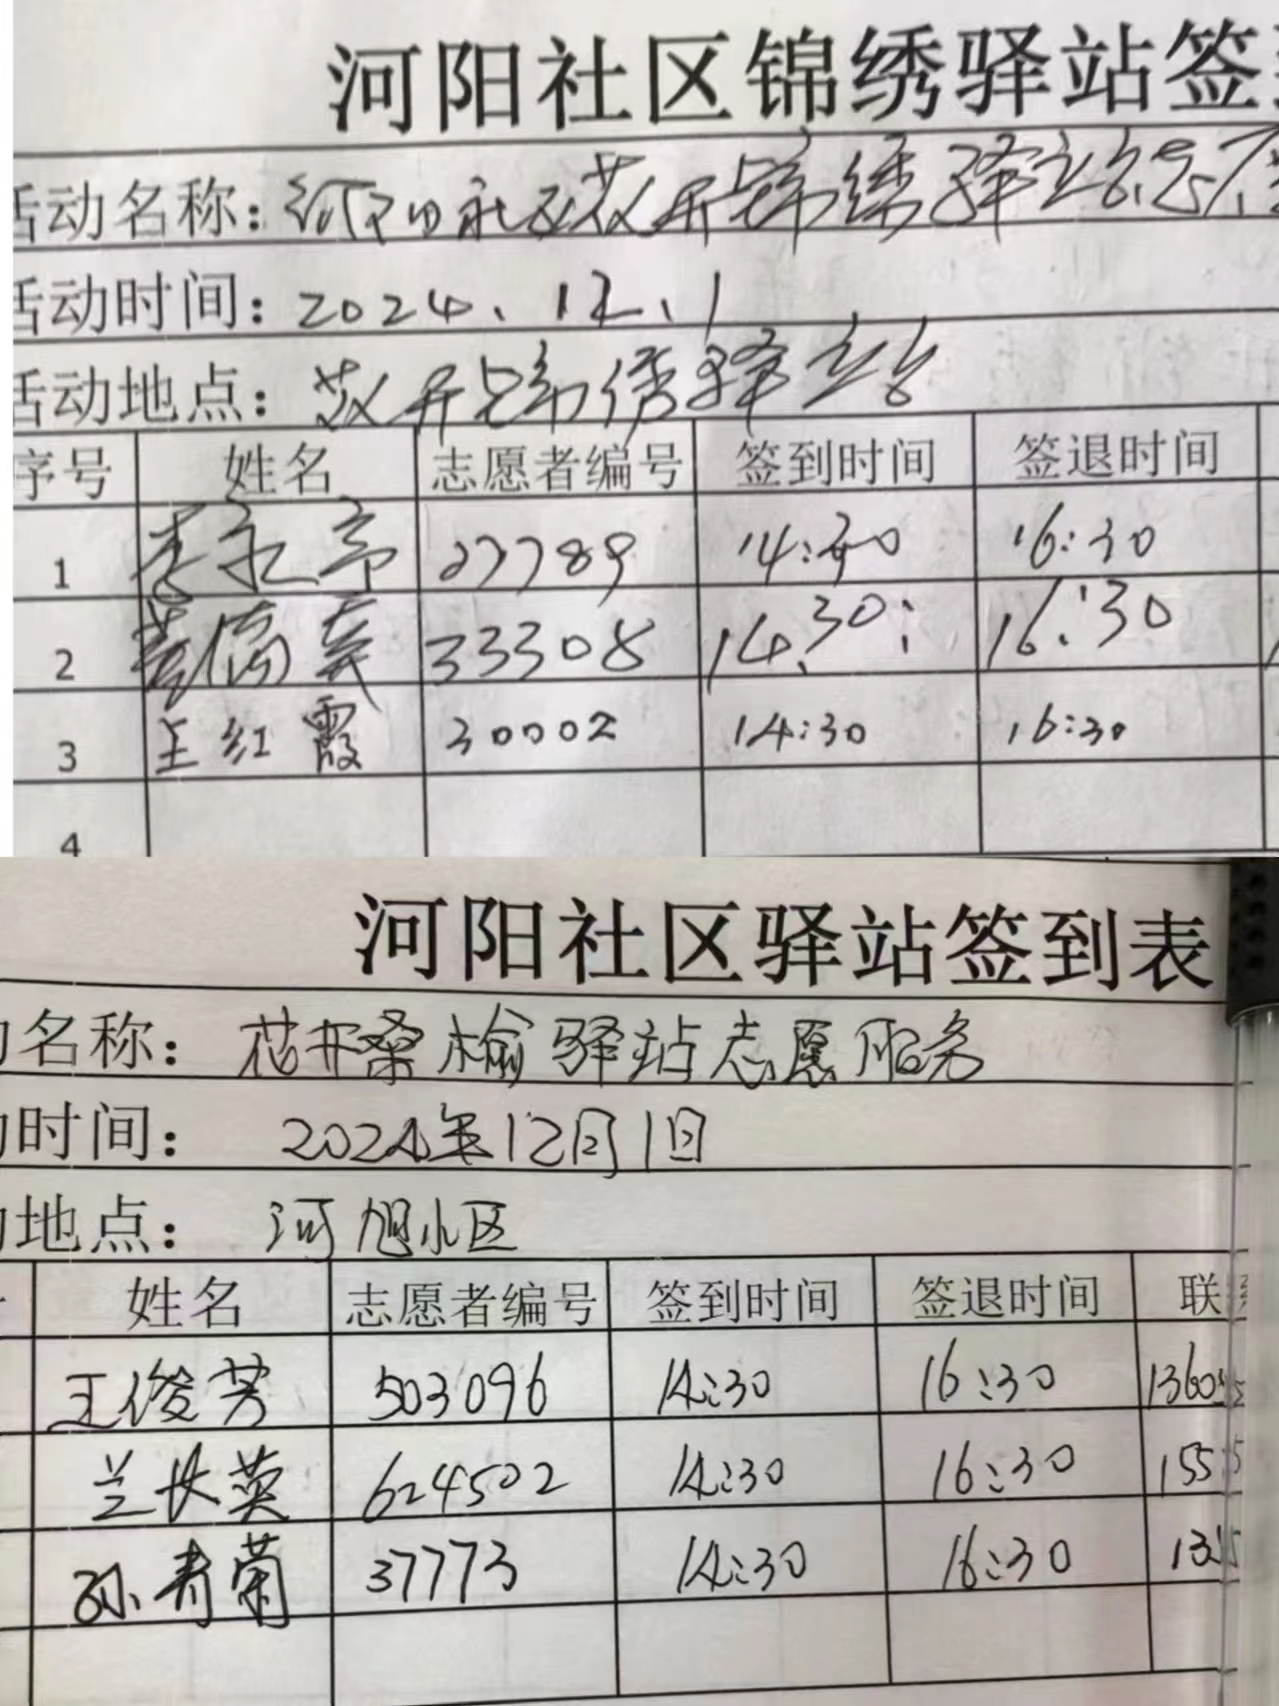 河阳社区锦绣驿站签
活动名称：河阳社区花开锦绣驿站志愿
活动时间：2024、12、1
活动地点：花开锦绣驿站
序号 姓名 志愿者编号 签到时间 签退时间
1 27789 14:30 16:30
2 33308 14:30: 16:30
3 王红霞 30002 14:30 16:30
4
河阳社区驿站签到表
名称：花开桑榆驿站志愿服务
时间：2024年12月1日
地点：河旭小区
姓名 志愿者编号 签到时间 签退时间 联
王俊芳 503096 14:30 16:30 1360
兰长英 624502 14:30 16:30 155
孙青菊 37773 14:30 16:30 132